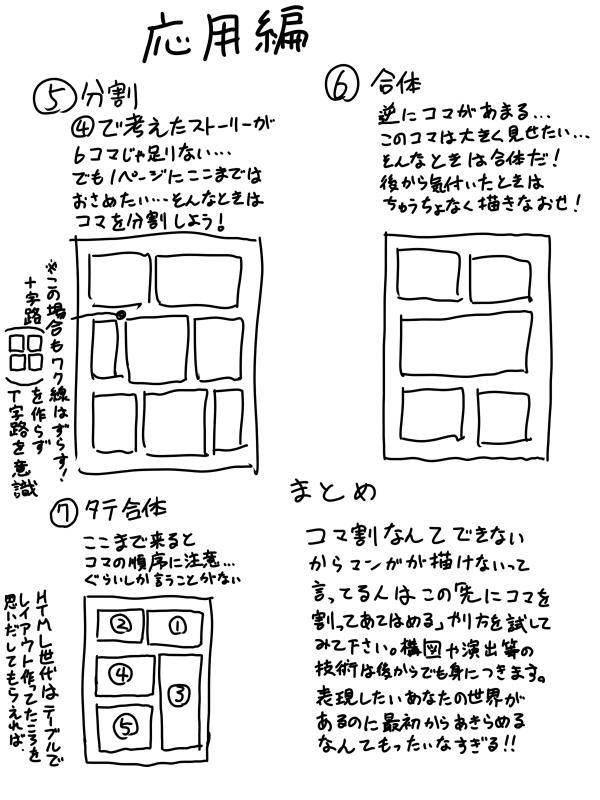 応用編
⑤分割
④で考えたストーリーが
6コマじゃ足りない…
でも1ページにここまでは
おさめたい…そんなときは
コマを分割しよう!
※この場合もワク線はずらす!
十字路
()を作らず
T字路を意識
⑥合体
逆にコマがあまる…
このコマは大きく見せたい…
そんなときは合体だ!
後から気付いたときは
ちゅうちょなく描きなおせ!
⑦タテ合体
ここまで来ると
コマの順序に注意…
ぐらいしか言うことがない
HTML世代はテーブルで
レイアウト作ってたころを
思いだしてもらえれば、
②
①
④
③
⑤
まとめ
コマ割なんてできない
からマンガが描けないって
言ってる人はこの「先にコマを
割ってあてはめる」やり方を試して
みて下さい。構図や演出等の
技術は後からでも身につきます。
表現したいあなたの世界が
あるのに最初からあきらめる
なんてもったいなすぎる!!